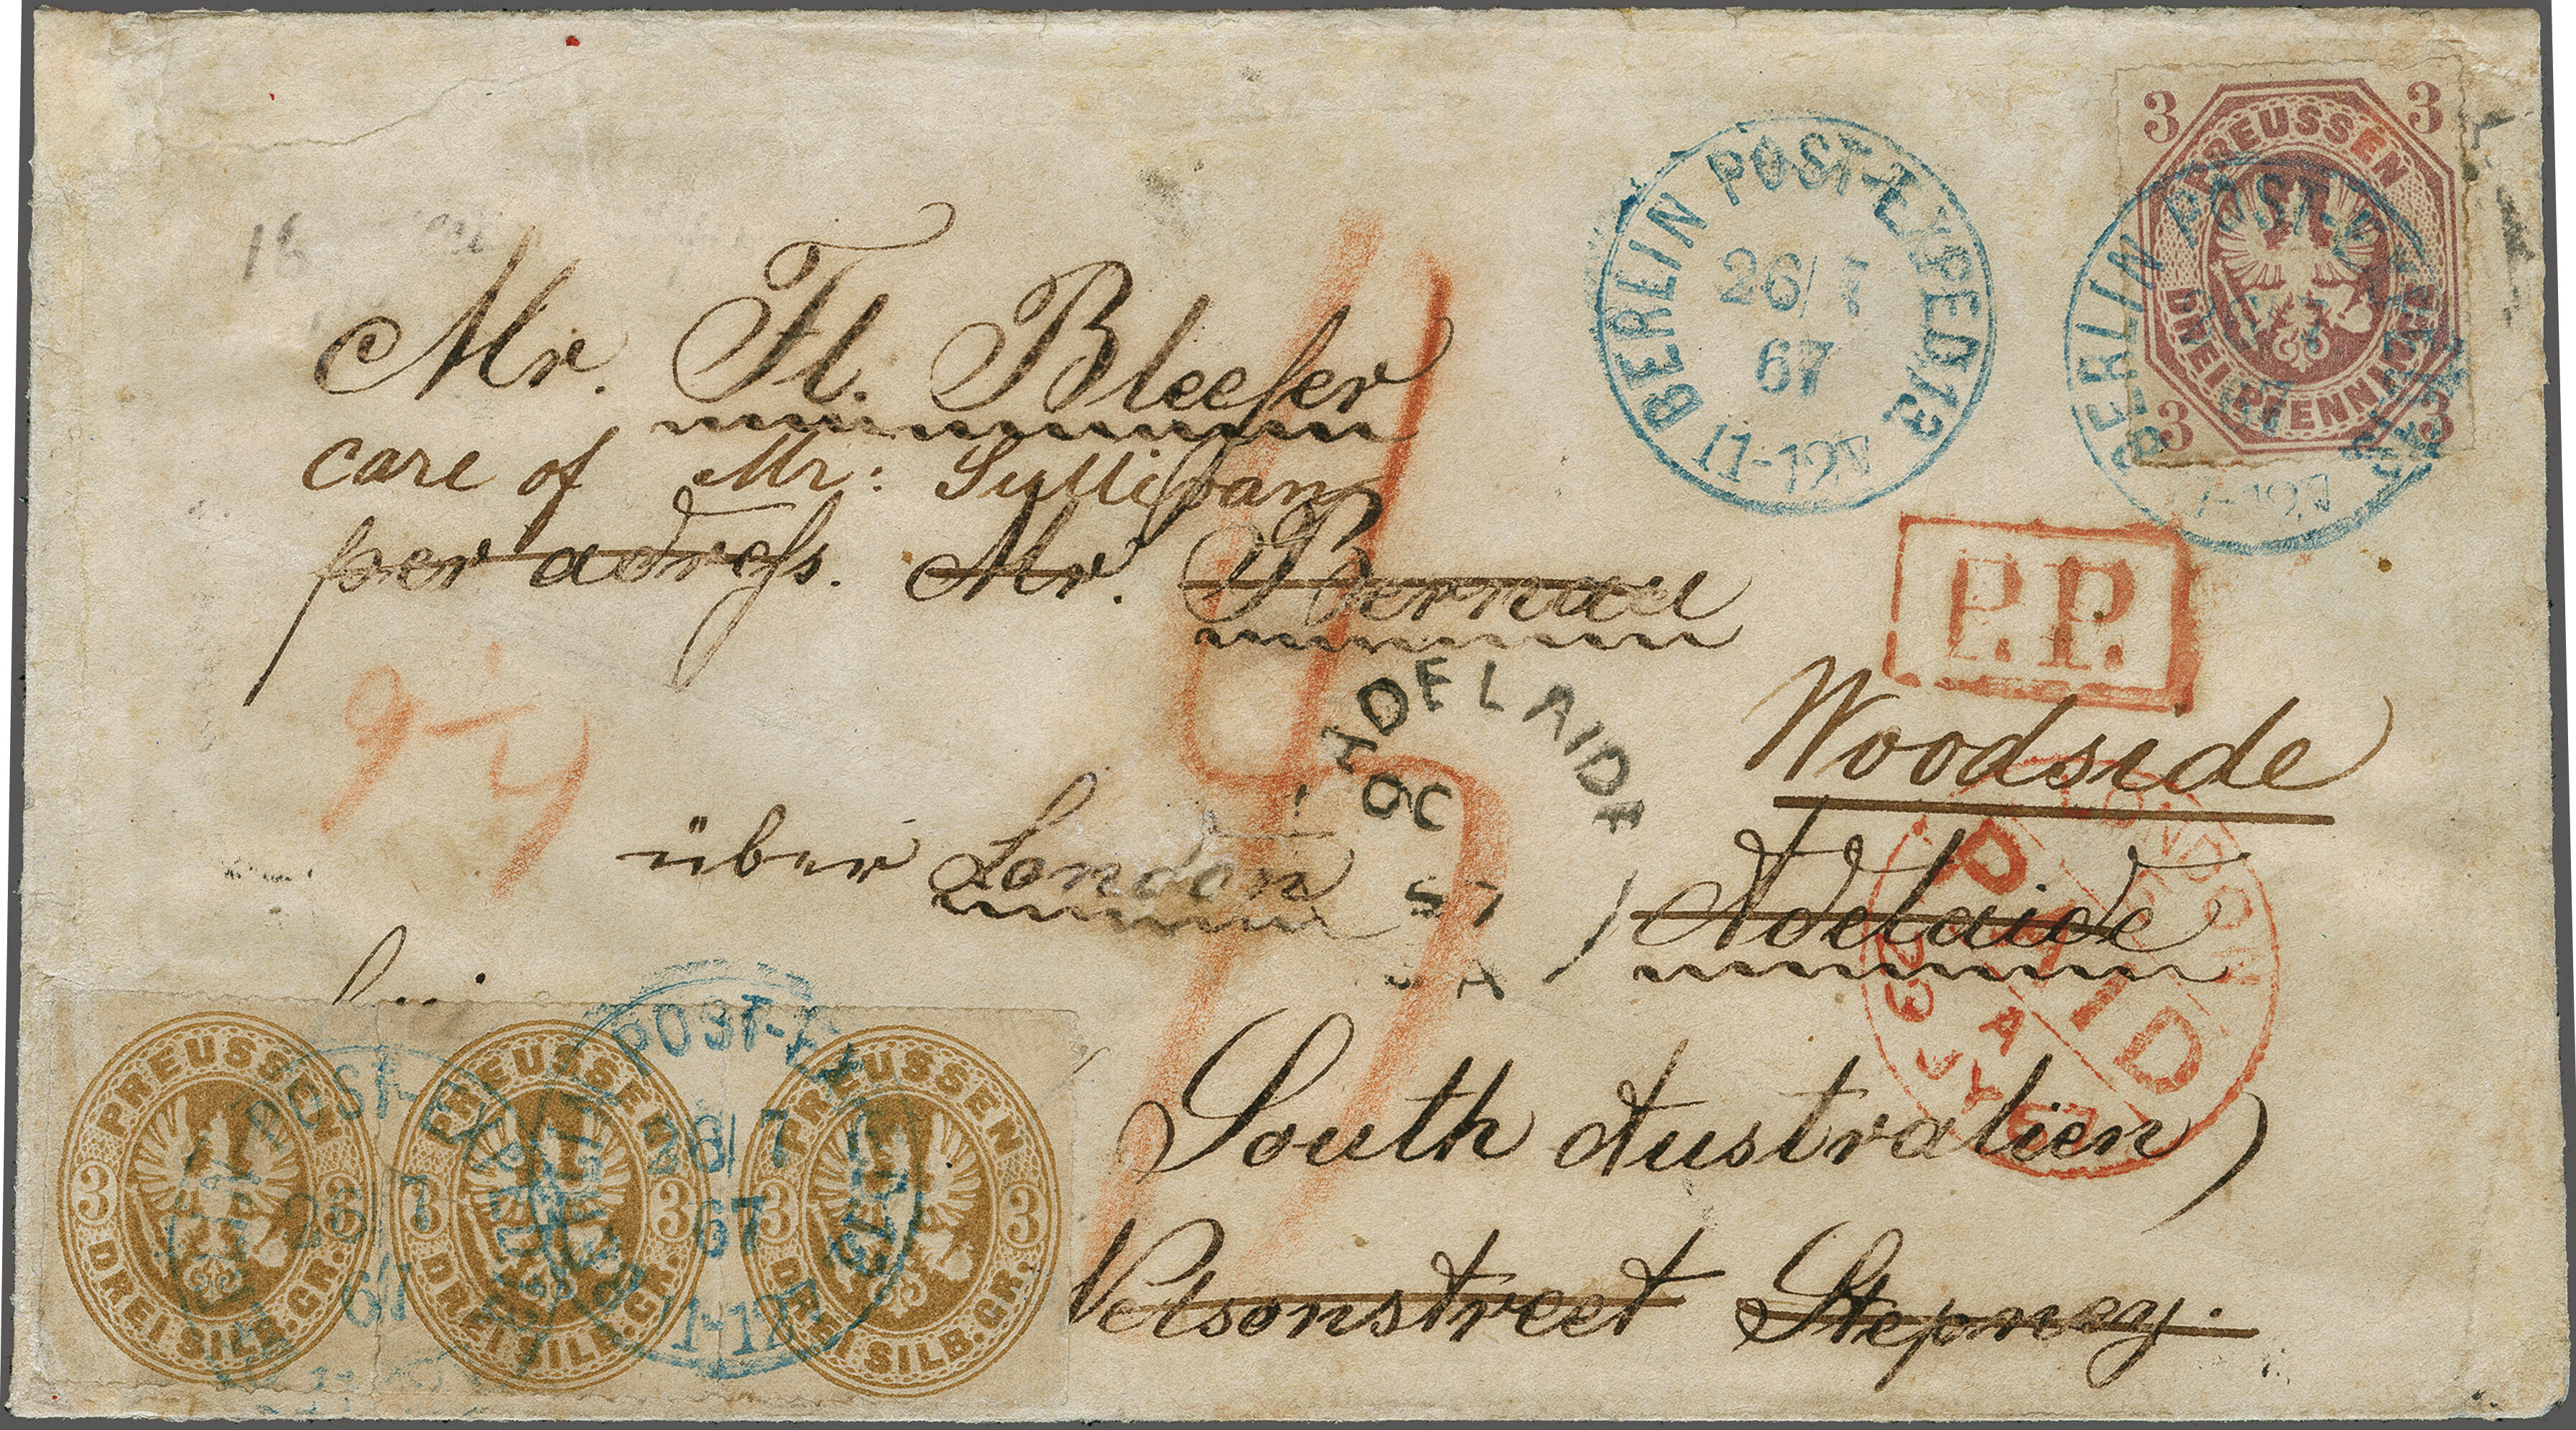 3 3
PREUSSEN
DREI PFENNIGE
3 3
BERLIN POST-EXPED 13
26/7
67
11-12V
BERLIN POST-
67
Mr. Fl. Bleeser
care of Mr: Sullivan
per adress. Mr. Bernau
P.P.
9 1/4
ADELAIDE
OC
67
S A
Woodside
über London
Adelaide
LONDON
PAID
South Australien)
Nelsonstreet Stepney.
PREUSSEN
3 3
DREI SILB.GR.
PREUSSEN
3 3
DREI SILB.GR.
PREUSSEN
3 3
DREI SILB.GR.
POST-EXPED 13
26/7
67
POST-EXPED 13
26/7
67
11-12